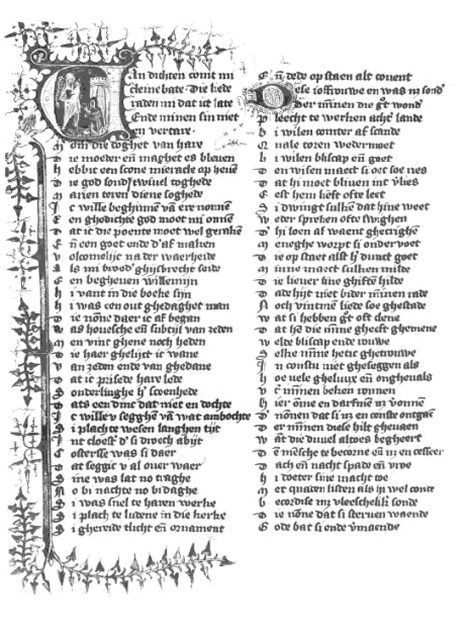 Van dichten comt mi
cleine bate. Die liede
raden mi dat ict late
Ende minen sin niet
en vertare.
M om die doghet van hare
Die moeder eñ maghet es bleuen
Hebbic een scone miracle op heuē
Die god sond' twiuel toghede
Marien teren diene soghede
Ic wille beghinnē vā ere nonnē
Een ghedichte god moet mi onnē
Dat ic die poente moet wel gerakē
Eñ een goet ende d' af maken
Volcomelijc na der waerheide
Als mi brood' ghijsbrecht seide
Een begheuen willemijn
Hi vant in die boeke sijn
Hi was een out ghedaghet man
Die nōne daer ic af began
Was houesche eñ subtijl van zeden
Men vint ghene noch heden
Die haer ghelijct ic wane
Van zeden ende van ghedane
Dat ic prisede hare lede
Sonderlinghe h' scoenhede
Dats een dinc dat niet en dochte
Ic wille v segghē vā wat ambochte
Si plach te wesen langhen tijt
Int cloest' d' si droech abijt
Costersse was si daer
Dat seggic v al ouer waer
Sine was lat no traghe
No bi nachte no bi daghe
Si was snel te haren werke
Si plach te ludene in die kerke
Si ghereide tlicht eñ ornament
Eñ dede op staen alt couent
Dese ioffrouwe en was nz sond'
Der mīnen die gt wond'
Pleecht te werken achē lande
Bi wilen comter af scande
Quale toren wedermoet
Bi wilen bliscap eñ goet
Den wisen maect si oec soe ries
Dat hi moet bliuen int v'lies
Eest hem lieft ofte leet
Si dwingt sulken dat hine weet
Weder spreken ofte swighen
Daer hi loen af waent ghecrighē
Meneghe worpt si onder voet
Die op staet alst h' dunct goet
Minne maect sulken milde
Die lieuer sine ghifte hilde
Dade hijt niet bider mīnen rade
Noch vintmē liede soe ghestade
Wat si hebben gt oft clene
Dat hē die mīne gheeft ghemene
Welde bliscap ende rouwe
Selke mīne hetic ghetrouwe
In constu niet gheseggen als
Hoe vele gheluux eñ ongheuals
Vt' mīnen beken ronnen
Hier ōme en darfmē nz vonnē
D' nōnen dat si nz en conste ontgaē
Der mīnen diese hilt gheuaen
Want die duuel altoes begheert
Den mēsche te becorne eñ nz en cesseert
Dach eñ nacht spade eñ vroe
Hi doeter sine macht toe
Met quaden listen als hi wel conde
Becordise mz vleescheliker sonde
Die nōne dat si steruen waende
Gode bat si ende v'maende